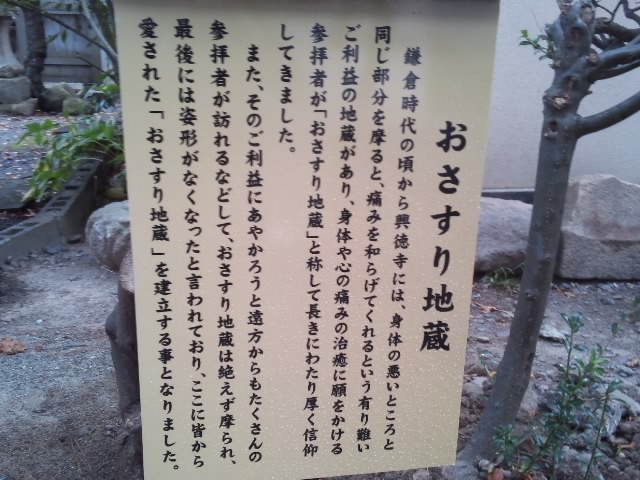 おさすり地蔵
鎌倉時代の頃から興徳寺には、身体の悪いところと
同じ部分を摩ると、痛みを和らげてくれるという有り難い
ご利益の地蔵があり、身体や心の痛みの治癒に願をかける
参拝者が「おさすり地蔵」と称して長きにわたり厚く信仰
してきました。
また、そのご利益にあやかろうと遠方からもたくさんの
参拝者が訪れるなどして、おさすり地蔵は絶えず摩られ、
最後には姿形がなくなったと言われており、ここに皆から
愛された「おさすり地蔵」を建立する事となりました。